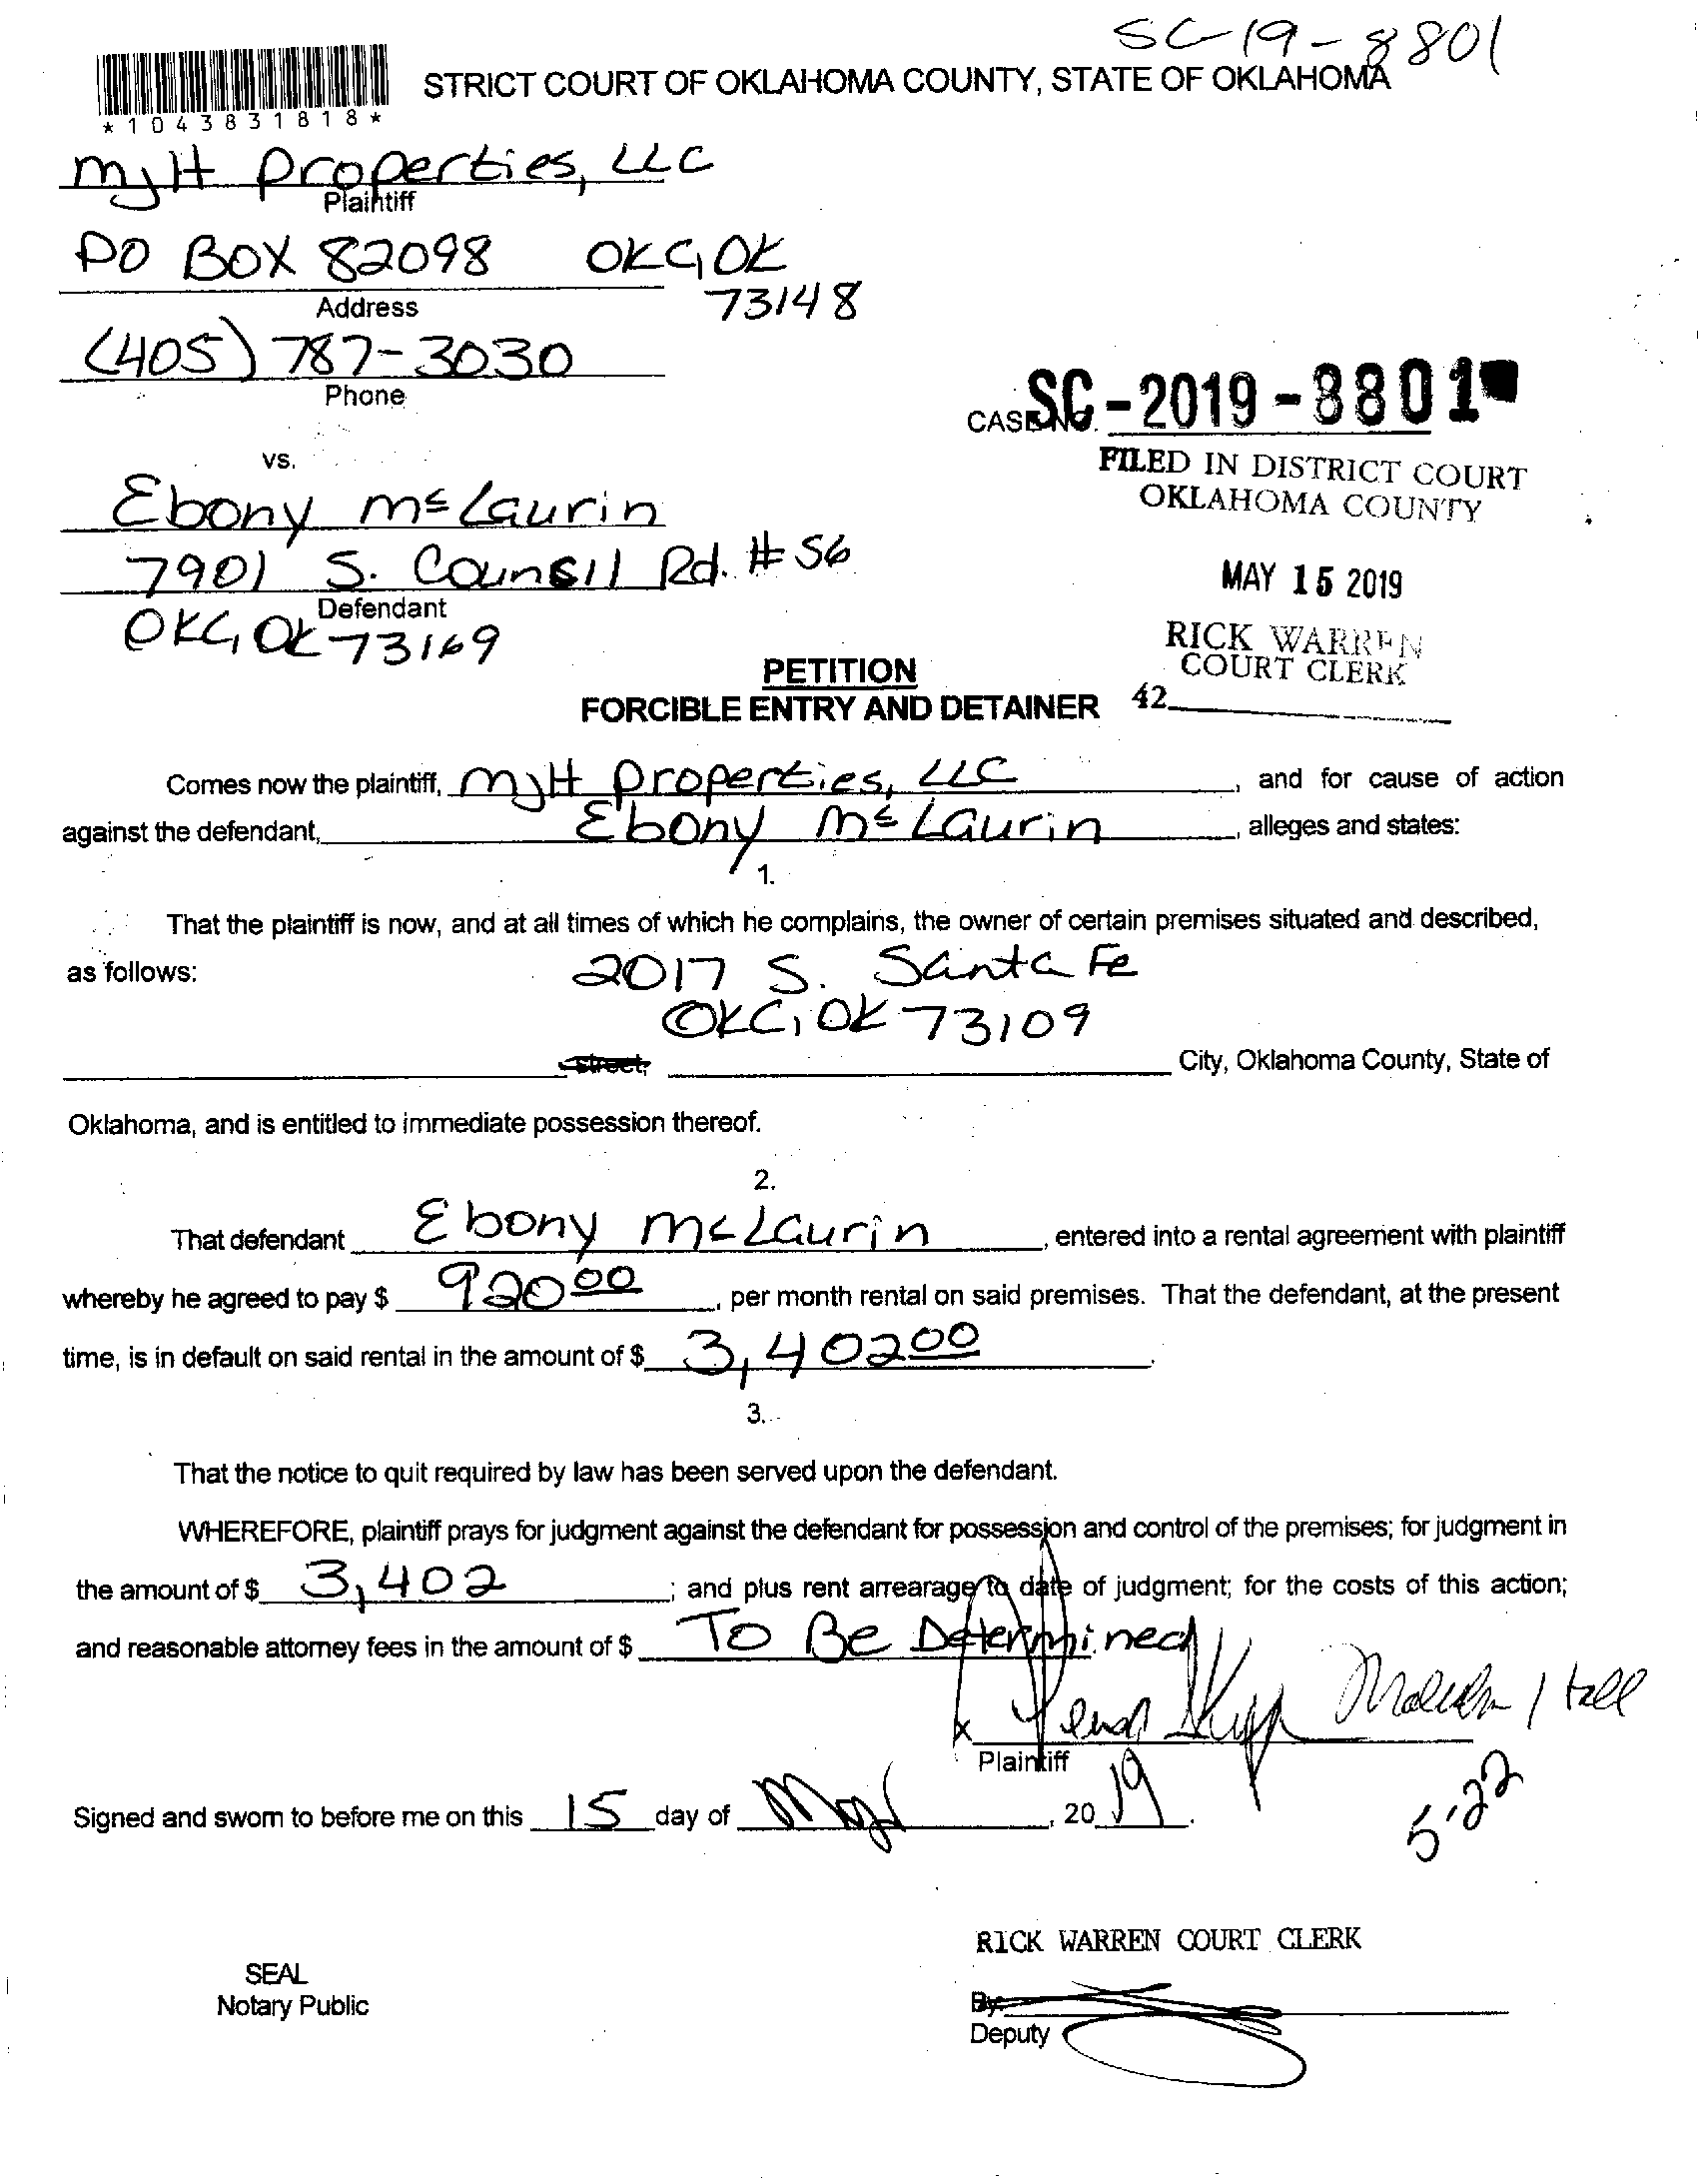 SC-19-8801
STRICT COURT OF OKLAHOMA COUNTY, STATE OF OKLAHOMA
*1043831818*
MJH Properties, LLC
Plaintiff
PO BOX 82098 OKC, OK
73148
Address
(405) 787-3030
Phone
CASE NO. SC-2019-8801
vs.
FILED IN DISTRICT COURT
OKLAHOMA COUNTY
Ebony McLaurin
7901 S. Council Rd. #56
MAY 15 2019
Defendant
OKC, OK 73169
RICK WARREN
COURT CLERK
PETITION
42
FORCIBLE ENTRY AND DETAINER
Comes now the plaintiff, MJH Properties, LLC, and for cause of action
against the defendant, Ebony McLaurin, alleges and states:
1.
That the plaintiff is now, and at all times of which he complains, the owner of certain premises situated and described,
as follows: 2017 S. Santa Fe
OKC, OK 73109
street, City, Oklahoma County, State of
Oklahoma, and is entitled to immediate possession thereof.
2.
That defendant Ebony McLaurin, entered into a rental agreement with plaintiff
whereby he agreed to pay $ 920 00, per month rental on said premises. That the defendant, at the present
time, is in default on said rental in the amount of $ 3,402 00.
3.
That the notice to quit required by law has been served upon the defendant.
WHEREFORE, plaintiff prays for judgment against the defendant for possession and control of the premises; for judgment in
the amount of $ 3,402; and plus rent arrearage to date of judgment; for the costs of this action;
and reasonable attorney fees in the amount of $ To Be Determined
X
Plaintiff
Signed and sworn to before me on this 15 day of May, 20 19.
5-22
RICK WARREN COURT CLERK
SEAL
Notary Public
By:
Deputy